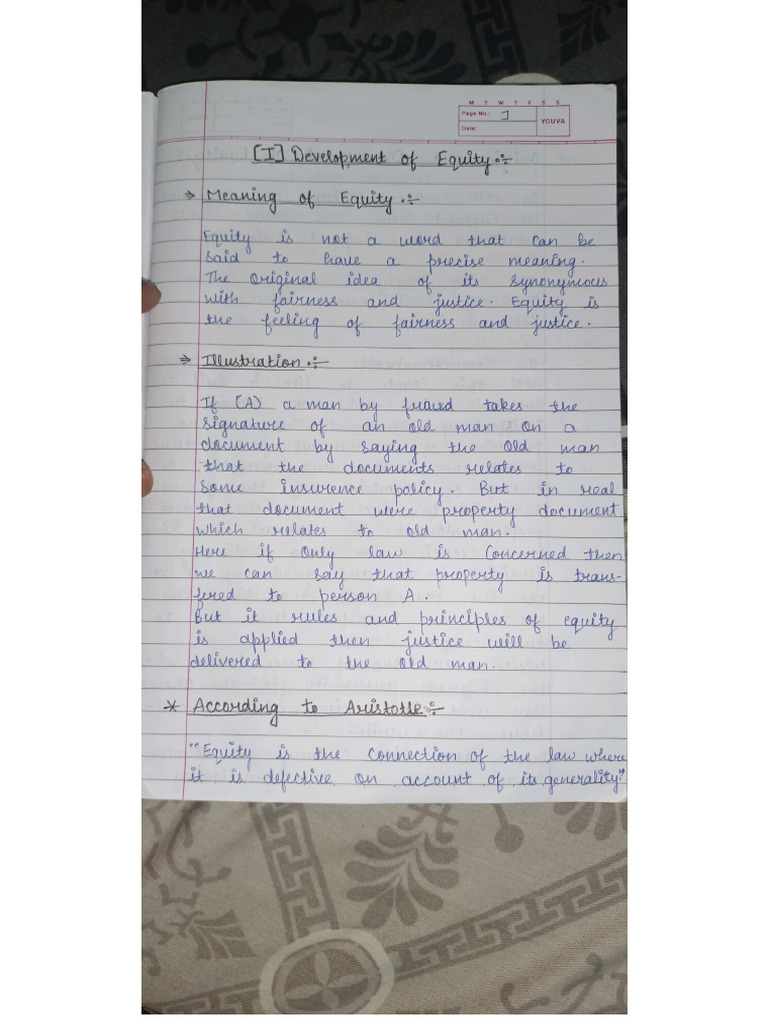 M T W T F S S
Page No.: 1
YOUVA
Date:
[I] Development of Equity :-
⇒ Meaning of Equity :-
Equity is not a word that can be
said to have a precise meaning.
The original idea of its synonymous
with fairness and justice. Equity is
the feeling of fairness and justice.
⇒ Illustration :-
If (A) a man by fraud takes the
signature of an old man on a
document by saying the old man
that the documents relates to
some insurence policy. But in real
that document were property document
which relates to old man.
Here if only law is concerned then
we can say that property is trans-
fered to person A.
But it rules and principles of equity
is applied then justice will be
delivered to the old man.
* According to Aristotle :-
"Equity is the connection of the law where
it is defective on account of its generality"